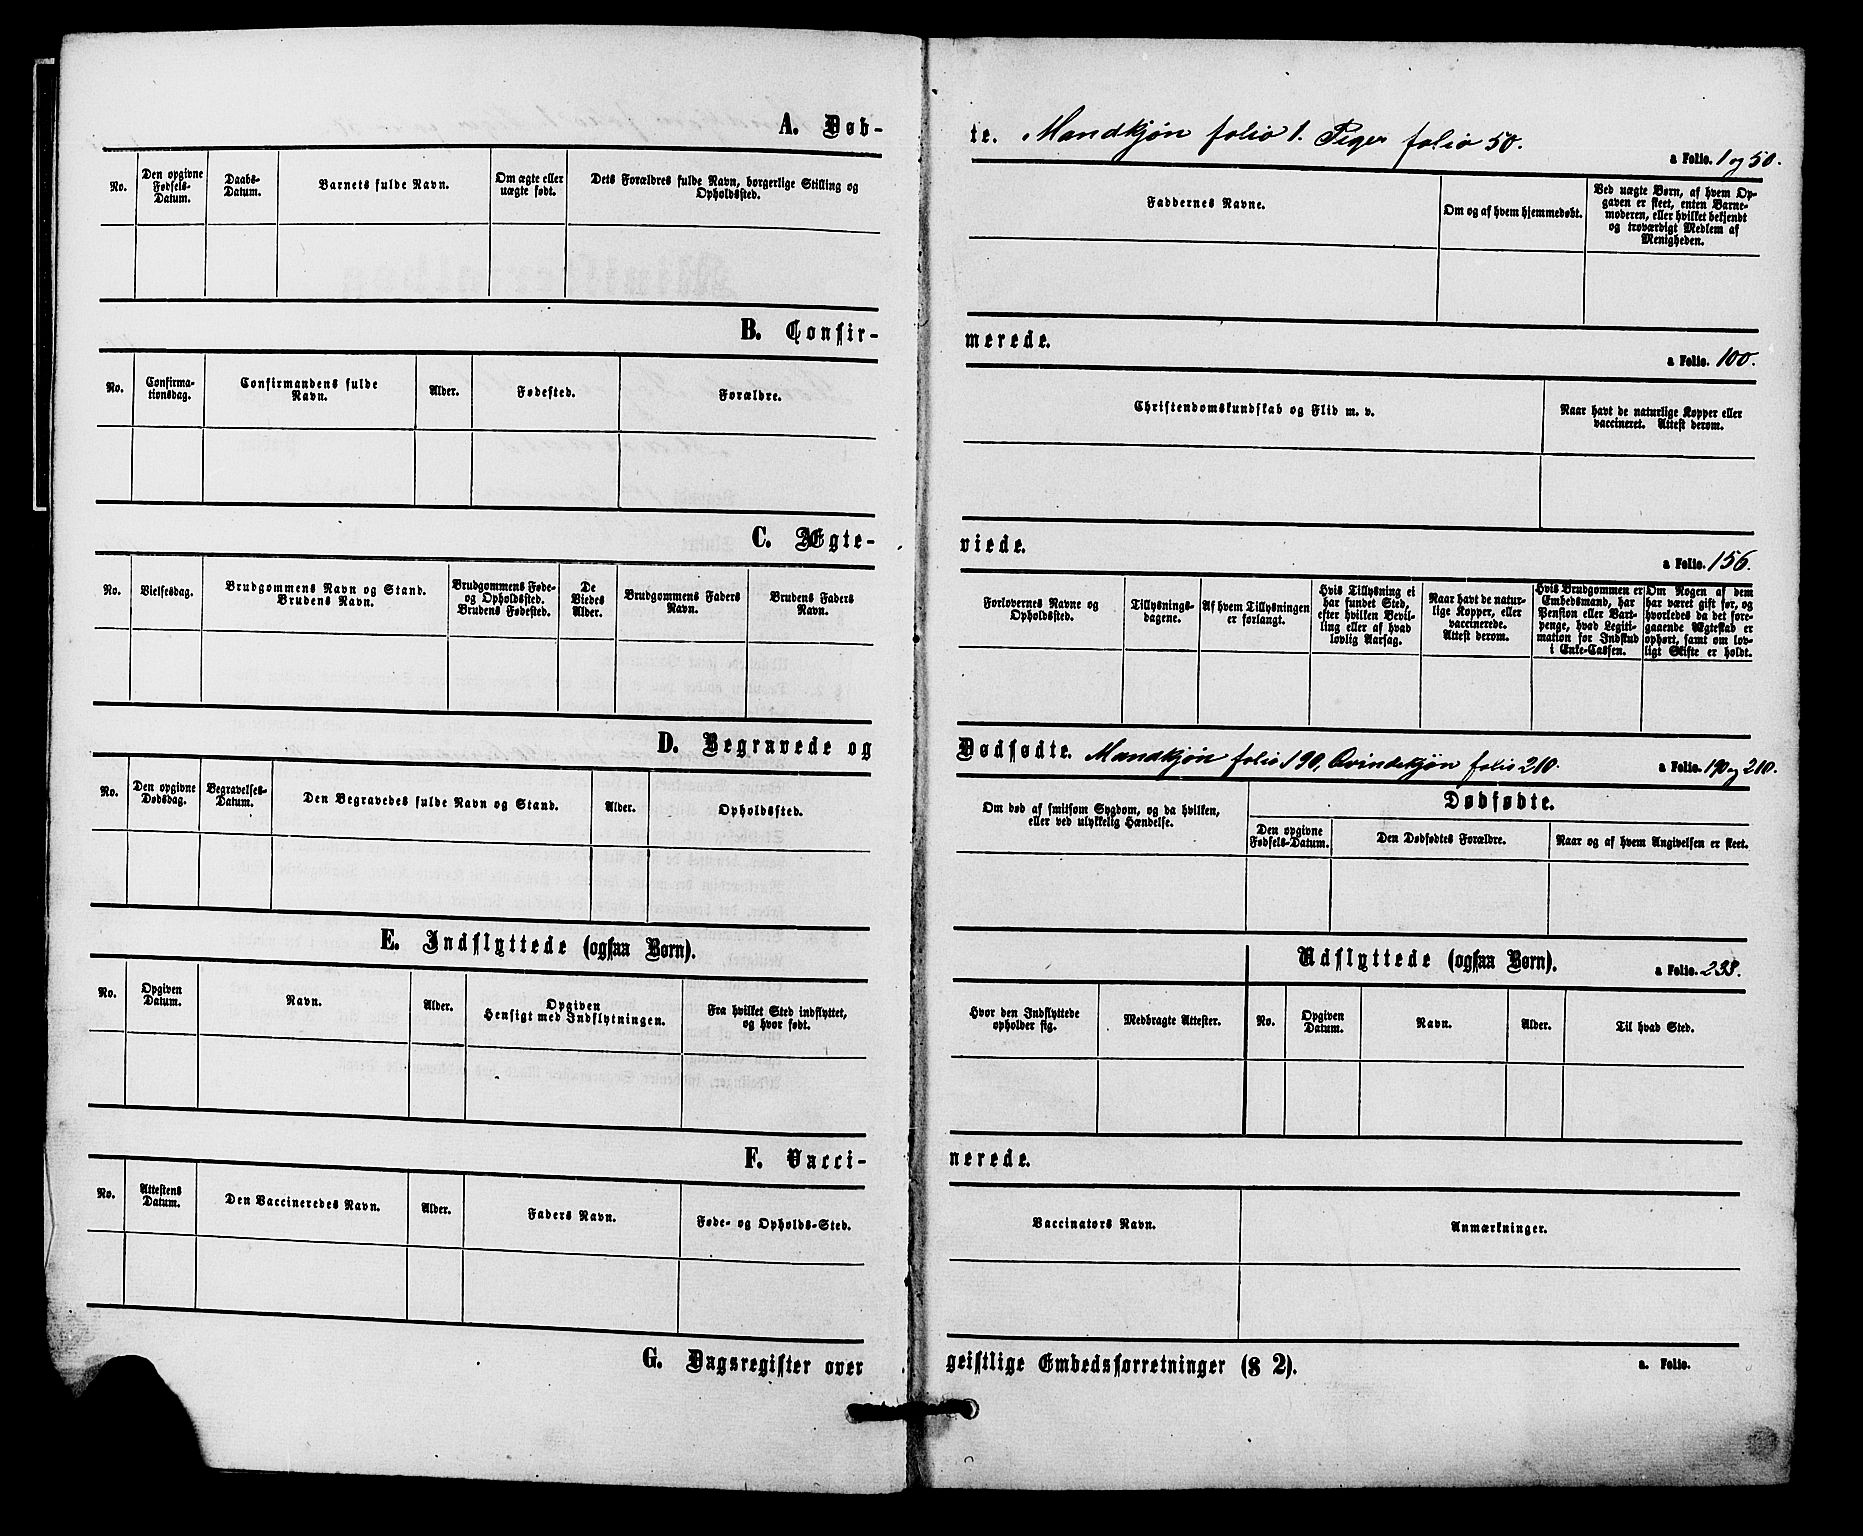 A. Døb-
te. Mandkjøn folio 1. Piger folio 50.
a Folio. 1 og 50.
No.
Den opgivne
Fødsels-
Datum.
Daabs-
Datum.
Barnets fulde Navn.
Om ægte eller
uægte født.
Dets Forældres fulde Navn, borgerlige Stilling og
Opholdssted.
Faddernes Navne.
Om og af hvem hjemmedøbt.
Ved uægte Børn, af hvem Op-
gaven er skeet, enten Barne-
moderen, eller hvilket bekjendt
og troværdigt Medlem af
Menigheden.
B. Confir-
merede.
a Folio. 100.
No.
Confirma-
tionsdag.
Confirmandens fulde
Navn.
Alder.
Fødested.
Forældre.
Christendomskundskab og Flid m. v.
Naar havt de naturlige Kopper eller
vaccineret. Attest derom.
C. Ægte-
viede.
a Folio. 156.
No.
Vielsesdag.
Brudgommens Navn og Stand.
Brudens Navn.
Brudgommens Føde-
og Opholdssted.
Brudens Fødested.
De
Viedes
Alder.
Brudgommens Faders
Navn.
Brudens Faders
Navn.
Forlovernes Navne og
Opholdssted.
Tillysnings-
dagene.
Af hvem Tillysningen
er forlangt.
Hvis Tillysning ei
har fundet Sted,
efter hvilken Bevil-
ling eller af hvad
lovlig Aarsag.
Naar havt de natur-
lige Kopper, eller
vaccinerede.
Attest derom.
Hvis Brudgommen er
Embedsmand, har
Pension eller Vart-
penge, hvad Legiti-
mation for Indskud
i Enke-Cassen.
Om Nogen af dem
har været gift før, og
hvorledes da det fore-
gaaende Ægteskab er
ophørt, samt om lov-
ligt Skifte er holdt.
D. Begravede og
Dødfødte. Mandkjøn folio 190, Qvindekjøn folio 210.
a Folio. 190 og 210.
No.
Den opgivne
Dødsdag.
Begravelses-
Datum.
Den Begravedes fulde Navn og Stand.
Alder.
Opholdssted.
Om død af smitsom Sygdom, og da hvilken,
eller ved ulykkelig Hændelse.
Dødfødte.
Den opgivne
Fødsels-Datum.
Den Dødfødtes Forældre.
Naar og af hvem Angivelsen er skeet.
E. Indflyttede (ogsaa Børn).
Udflyttede (ogsaa Børn).
a Folio. 233.
No.
Opgiven
Datum.
Navn.
Alder.
Opgiven
Hensigt med Indflytningen.
Fra hvilket Sted indflyttet,
og hvor født.
Hvor den Indflyttede
opholder sig.
Medbragte Attester.
No.
Opgiven
Datum.
Navn.
Alder.
Til hvad Sted.
F. Vacci-
nerede.
No.
Attestens
Datum.
Den Vaccineredes Navn.
Alder.
Faders Navn.
Føde- og Opholds-Sted.
Vaccinators Navn.
Anmærkninger.
G. Dagsregister over
geistlige Embedsforretninger (§ 2).
a. Folio.